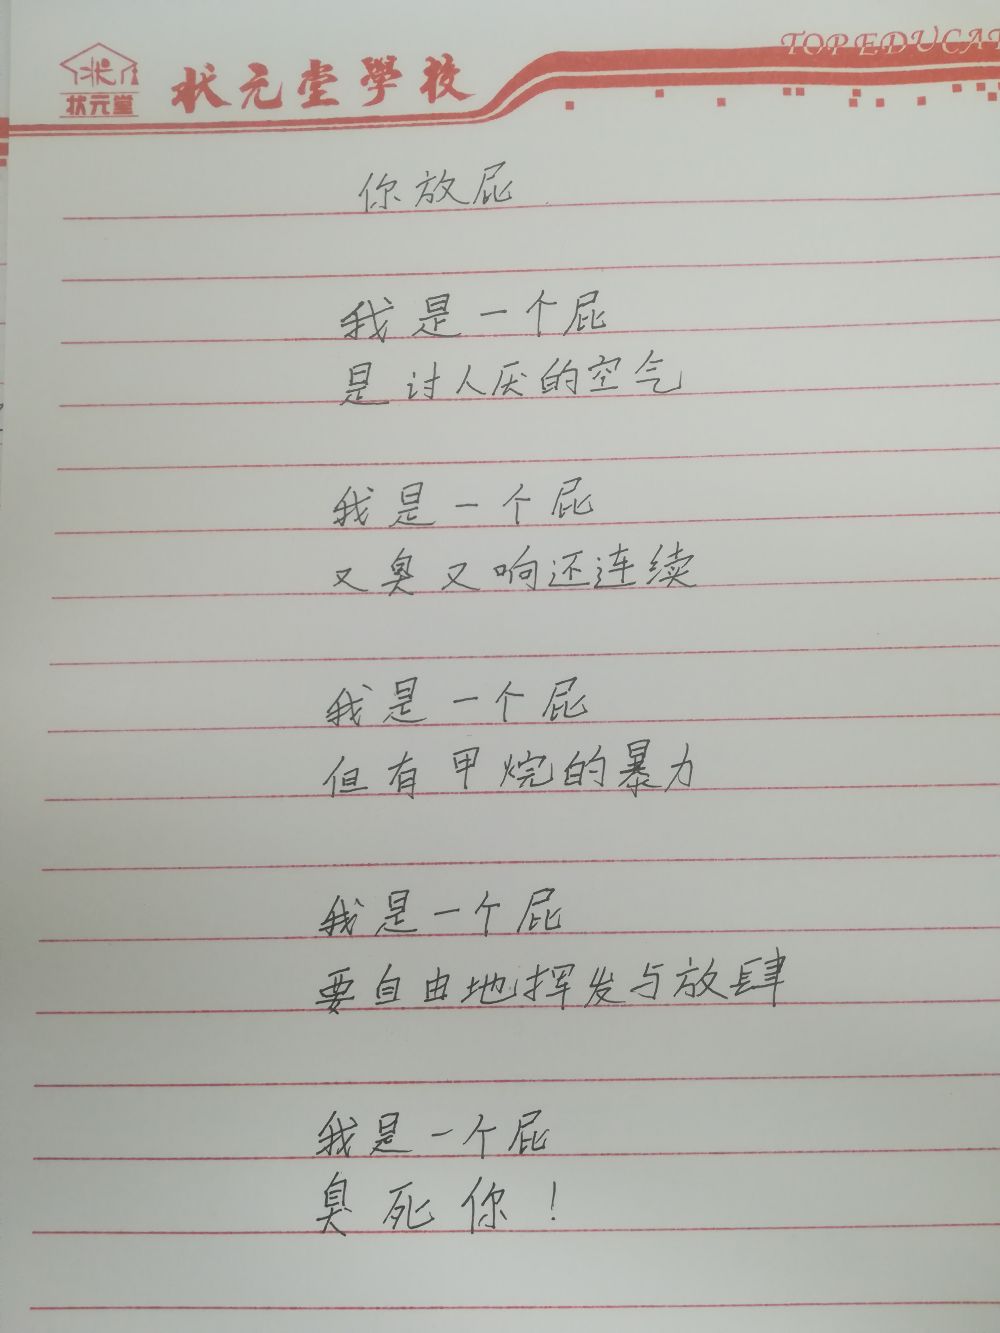 TOP EDUCAT
状元堂
状元堂學校
你放屁
我是一个屁
是讨人厌的空气
我是一个屁
又臭又响还连续
我是一个屁
但有甲烷的暴力
我是一个屁
要自由地挥发与放肆
我是一个屁
臭死你！